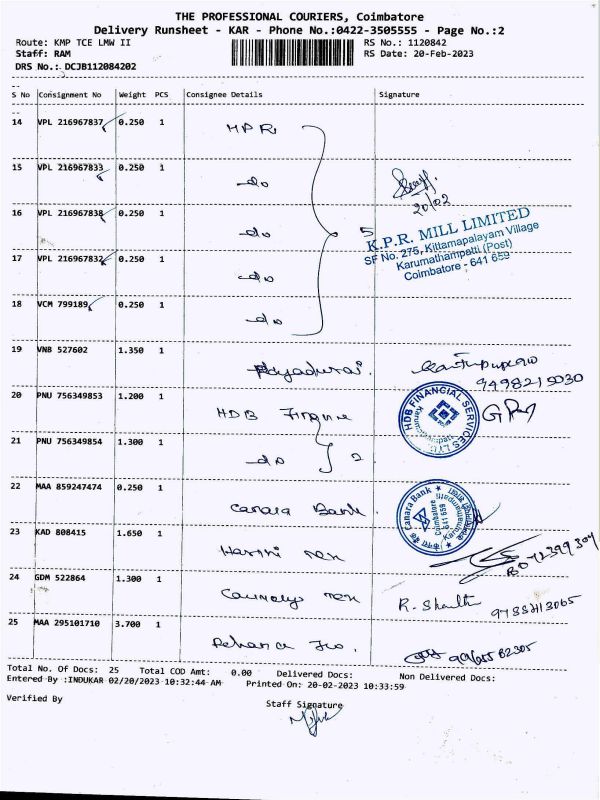 THE PROFESSIONAL COURIERS, Coimbatore
Delivery Runsheet - KAR - Phone No.:0422-3505555 - Page No.:2
Route: KMP TCE LMW II RS No.: 1120842
Staff: RAM RS Date: 20-Feb-2023
DRS No.: DCJB112084202
S No Consignment No Weight PCS Consignee Details Signature
14 VPL 216967837 0.250 1 KPR
15 VPL 216967833 0.250 1 do
20/02
16 VPL 216967838 0.250 1 do 5
K.P.R. MILL LIMITED
SF No. 275, Kittampalayam Village
Karumathampetti (Post)
Coimbatore - 641 659
17 VPL 216967832 0.250 1 do
18 VCM 799189 0.250 1 do
19 VNB 527602 1.350 1
9498215030
20 PNU 756349853 1.200 1 HDB Finance
HDB FINANCIAL SERVICES LTD
21 PNU 756349854 1.300 1 do 2
22 MAA 859247474 0.250 1 Canara Bank
Canara Bank
Coimbatore
641 659
23 KAD 808415 1.650 1 Harini Tex
24 GDM 522864 1.300 1 Tex
25 MAA 295101710 3.700 1
Total No. Of Docs: 25 Total COD Amt: 0.00 Delivered Docs: Non Delivered Docs:
Entered By :INDUKAR 02/20/2023 10:32:44 AM Printed On: 20-02-2023 10:33:59
Verified By Staff Signature